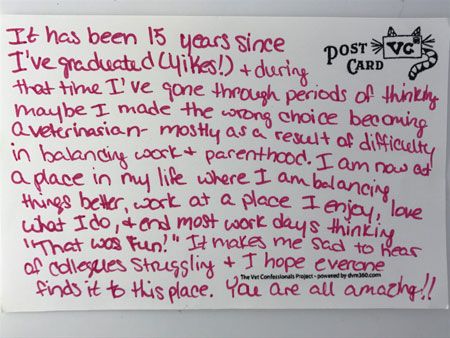 It has been 15 years since
I've graduated (Yikes!) + during
that time I've gone through periods of thinking
maybe I made the wrong choice becoming
a veterinarian - mostly as a result of difficulty
in balancing work + parenthood. I am now at
a place in my life where I am balancing
things better, work at a place I enjoy, love
what I do, + end most work days thinking
"That was fun!" It makes me sad to hear
of collegues struggling + I hope everone
finds it to this place. You are all amazing!!
POST CARD
VC
The Vet Confessionals Project - powered by dvm360.com